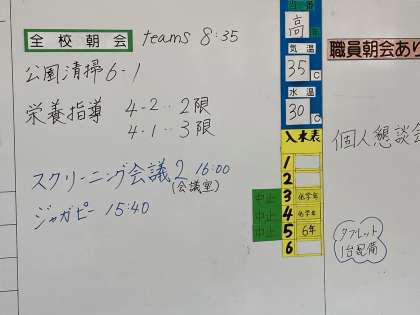 全校朝会 teams 8:35
公園清掃 6-1
栄養指導 4-2‥2限
4-1‥3限
スクリーニング会議2 16:00
(会議室)
ジャガピー 15:40
高
気温
35℃
水温
30℃
入水表
1
2
中止 3
中止 4
中止 5 6年
6
職員朝会あり
個人懇談会
タブレット
1台配備